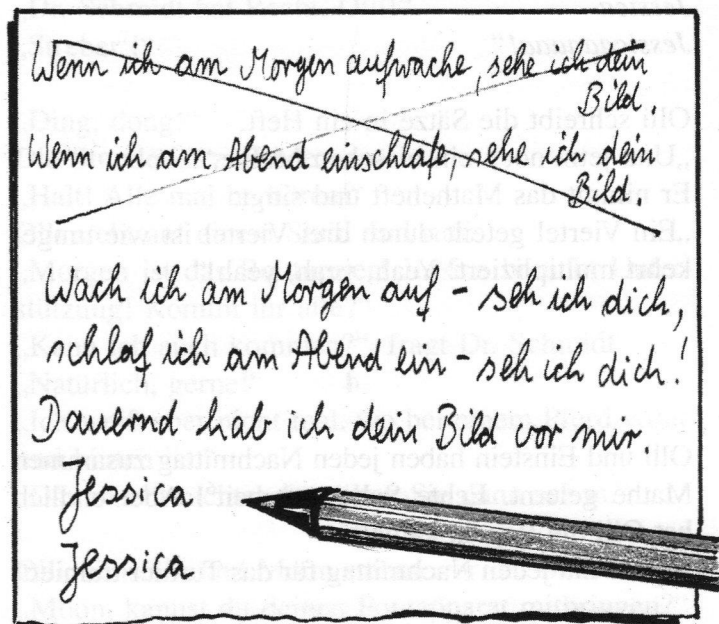 Wenn ich am Morgen aufwache, sehe ich dein
Bild.
Wenn ich am Abend einschlafe, sehe ich dein
Bild.
Wach ich am Morgen auf – seh ich dich,
schlaf ich am Abend ein – seh ich dich!
Dauernd hab ich dein Bild vor mir.
Jessica
Jessica